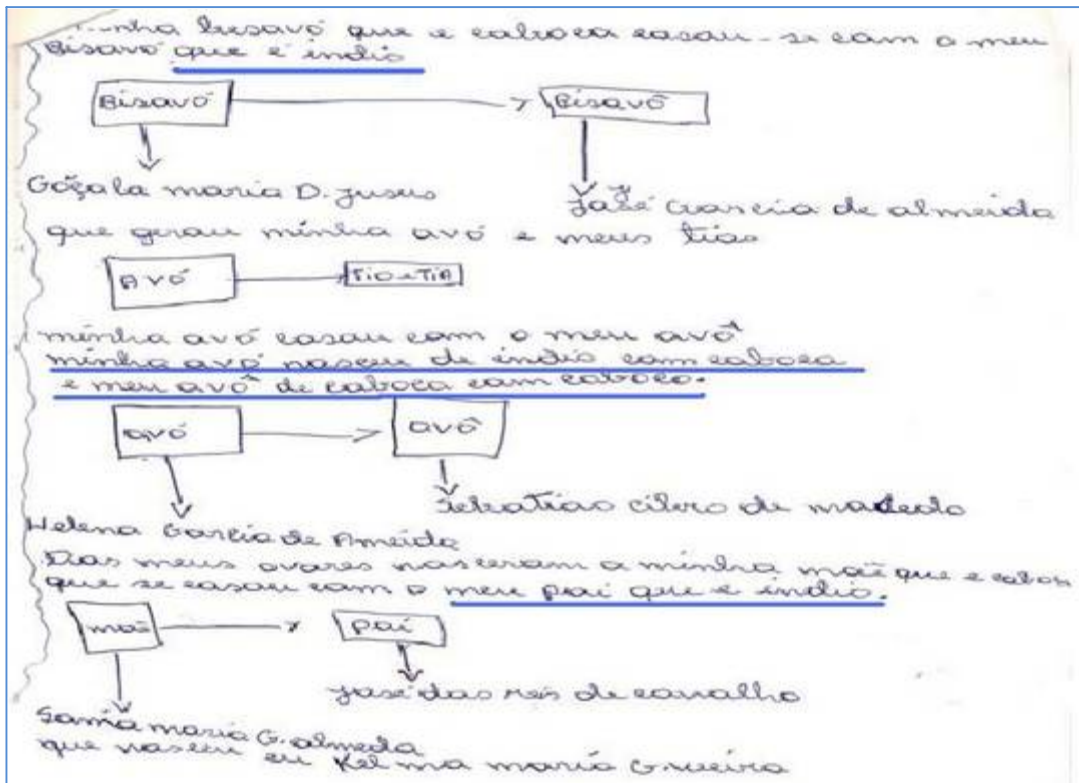 minha bisavó que e caboca casou-se com o meu
Bisavô que é indio
Bisavó Bisavô
Goçala maria D. Jusus
José Garcia de almeida
que gerou minha avó e meus tios
Avó Tio e TiA
minha avó casou com o meu avô
minha avó nasceu de índio com caboca
e meu avô de caboca com caboco.
avó avô
Sebatiao de macedo
Helena Garcia de Ameida
Dos meus avores nasceram a minha mãe que e caboc
que se casou com o meu pai que é indio.
mãe pai
José dos reis de carvalho
maria G. almeda
que nasceu eu Kelma maria G.